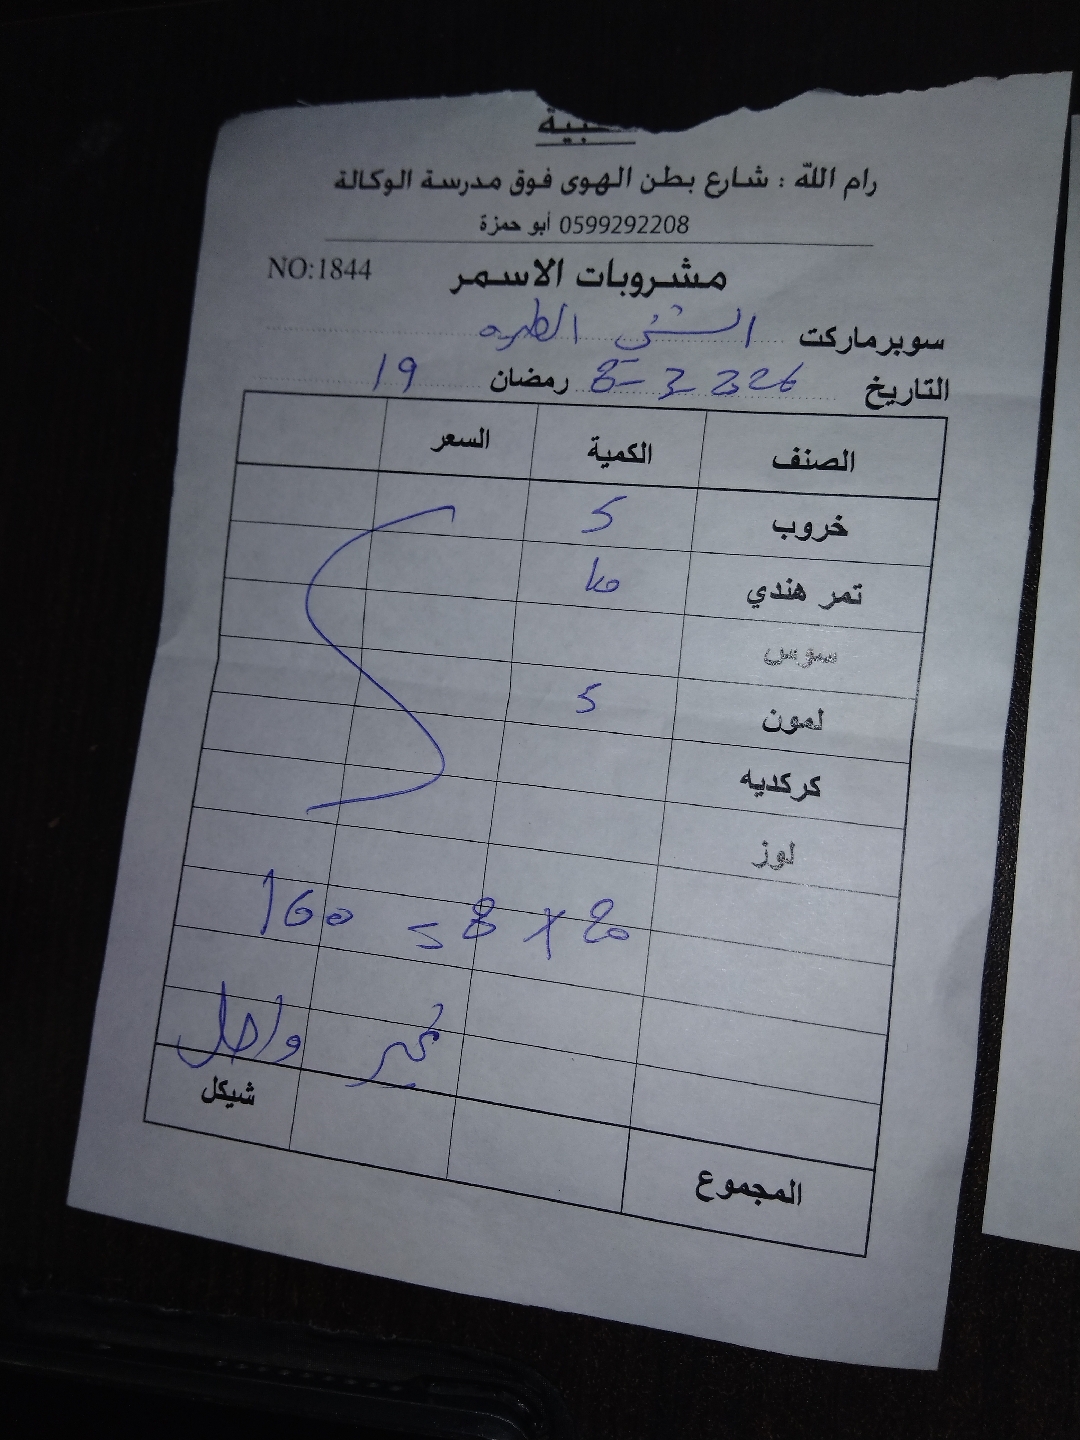 رام الله : شارع بطن الهوى فوق مدرسة الوكالة
0599292208 أبو حمزة
NO:1844
مشروبات الاسمر
سوبرماركت الشني
التاريخ 8-3-2026 رمضان 19
الصنف الكمية السعر
خروب 5
تمر هندي 10
سوس
لمون 5
كركديه
لوز
20 × 8 = 160
واصل
المجموع شيكل